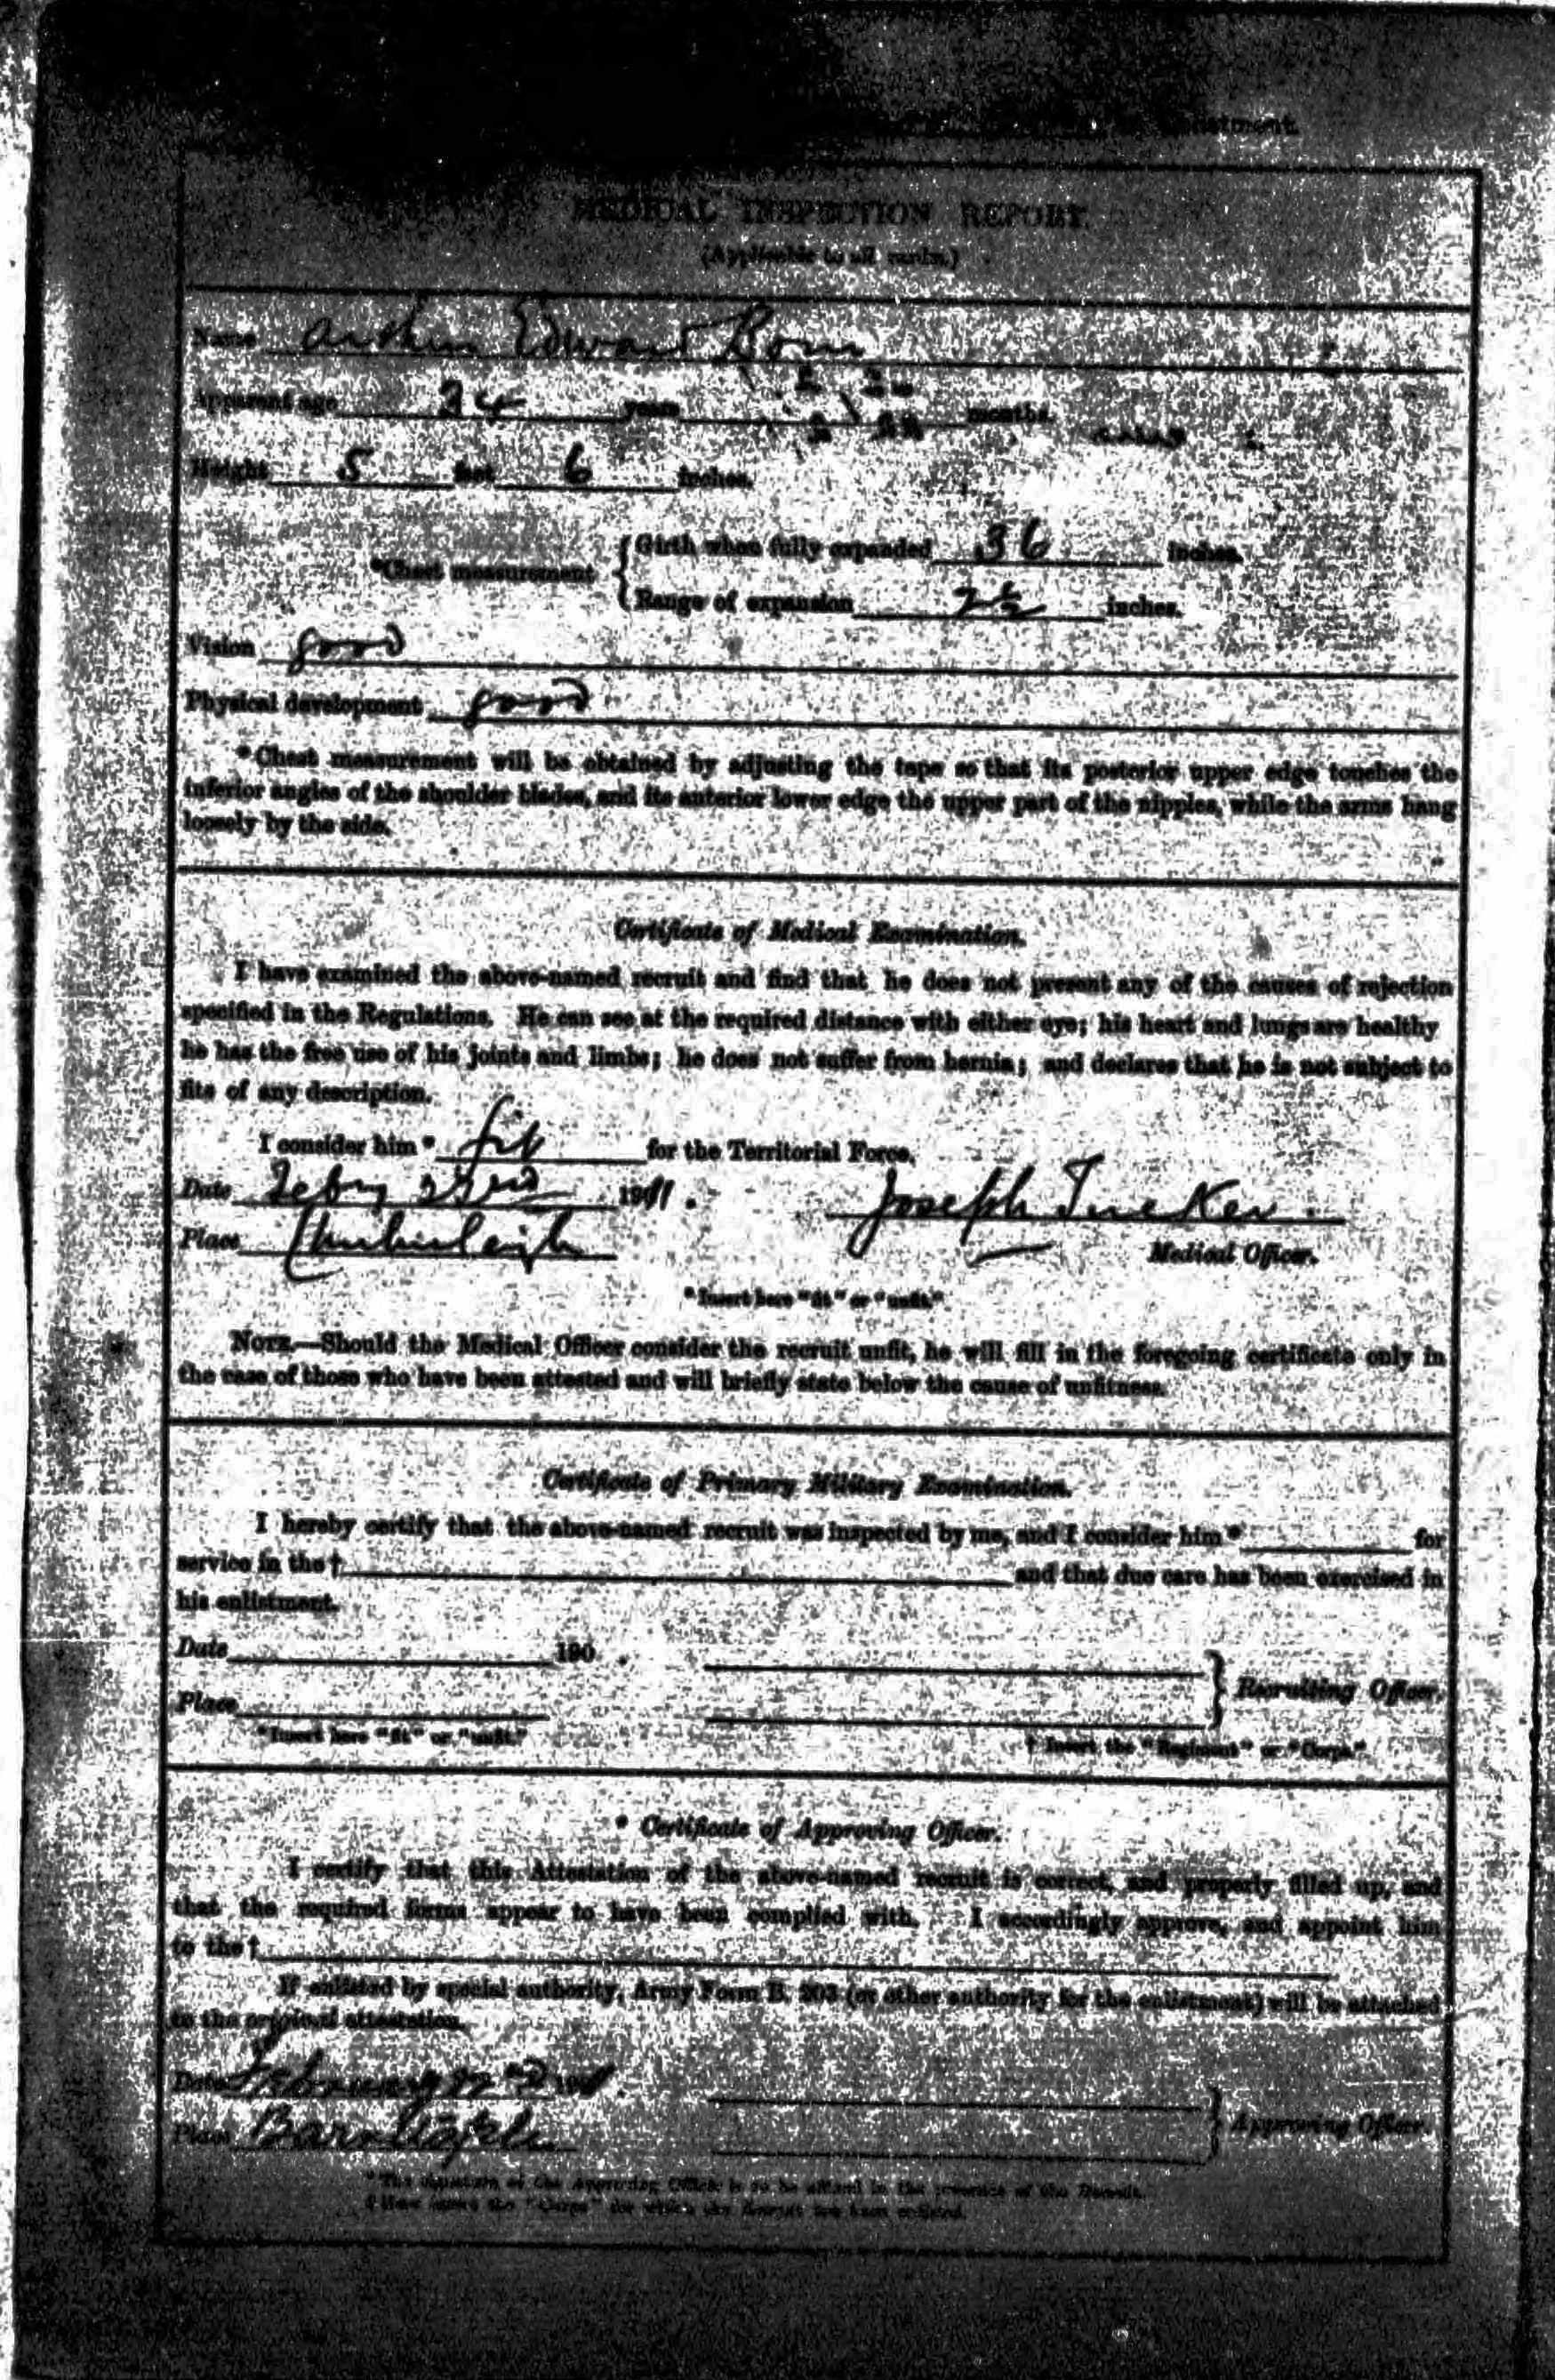 MEDICAL INSPECTION REPORT.
(Applicable to all ranks.)
Name Arthur Edward
Apparent age 34 years months.
Height 5 feet 6 inches.
*Chest measurement { Girth when fully expanded 36 inches.
Range of expansion 2½ inches.
Vision good
Physical development good
*Chest measurement will be obtained by adjusting the tape so that its posterior upper edge touches the
inferior angles of the shoulder blades, and its anterior lower edge the upper part of the nipples, while the arms hang
loosely by the side.
Certificate of Medical Examination.
I have examined the above-named recruit and find that he does not present any of the causes of rejection
specified in the Regulations. He can see at the required distance with either eye; his heart and lungs are healthy
he has the free use of his joints and limbs; he does not suffer from hernia; and declares that he is not subject to
fits of any description.
I consider him* fit for the Territorial Force.
Date Febry 1911. Joseph Tucker
Place Chulmleigh Medical Officer.
*Insert here "fit" or "unfit."
NOTE.—Should the Medical Officer consider the recruit unfit, he will fill in the foregoing certificate only in
the case of those who have been attested and will briefly state below the cause of unfitness.
Certificate of Primary Military Examination.
I hereby certify that the above-named recruit was inspected by me, and I consider him* for
service in the† and that due care has been exercised in
his enlistment.
Date 190 .
Place } Recruiting Officer.
*Insert here "fit" or "unfit." † Insert the "Regiment" or "Corps."
* Certificate of Approving Officer.
I certify that this Attestation of the above-named recruit is correct, and properly filled up, and
that the required forms appear to have been complied with. I accordingly approve, and appoint him
to the†
If enlisted by special authority, Army Form B. 203 (or other authority for the enlistment) will be attached
to the original attestation.
Date February 22nd 1911.
Place Barnstaple } Approving Officer.
*The signature of the Approving Officer is to be affixed in the presence of the Recruit.
† Here insert the "Corps" for which the Recruit has been enlisted.